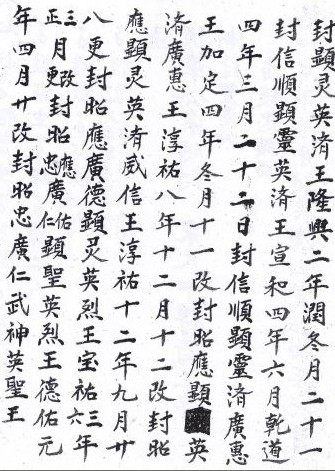 封顯灵英済王隆興二年潤冬月二十一
封信順顯靈英済王宣和四年六月乾道
四年三月二十二日封信順顯靈済廣惠
王加定四年冬月十一改封昭應顯英
済廣惠王淳祐八年十二月十二改封昭
應顯灵英済威信王淳祐十二年九月廿
八更封昭應廣德顯灵英烈王宝祐三六年
三正月改更封昭應忠廣佑仁顯聖英烈王德佑元
年四月廿改封昭忠廣仁武神英聖王